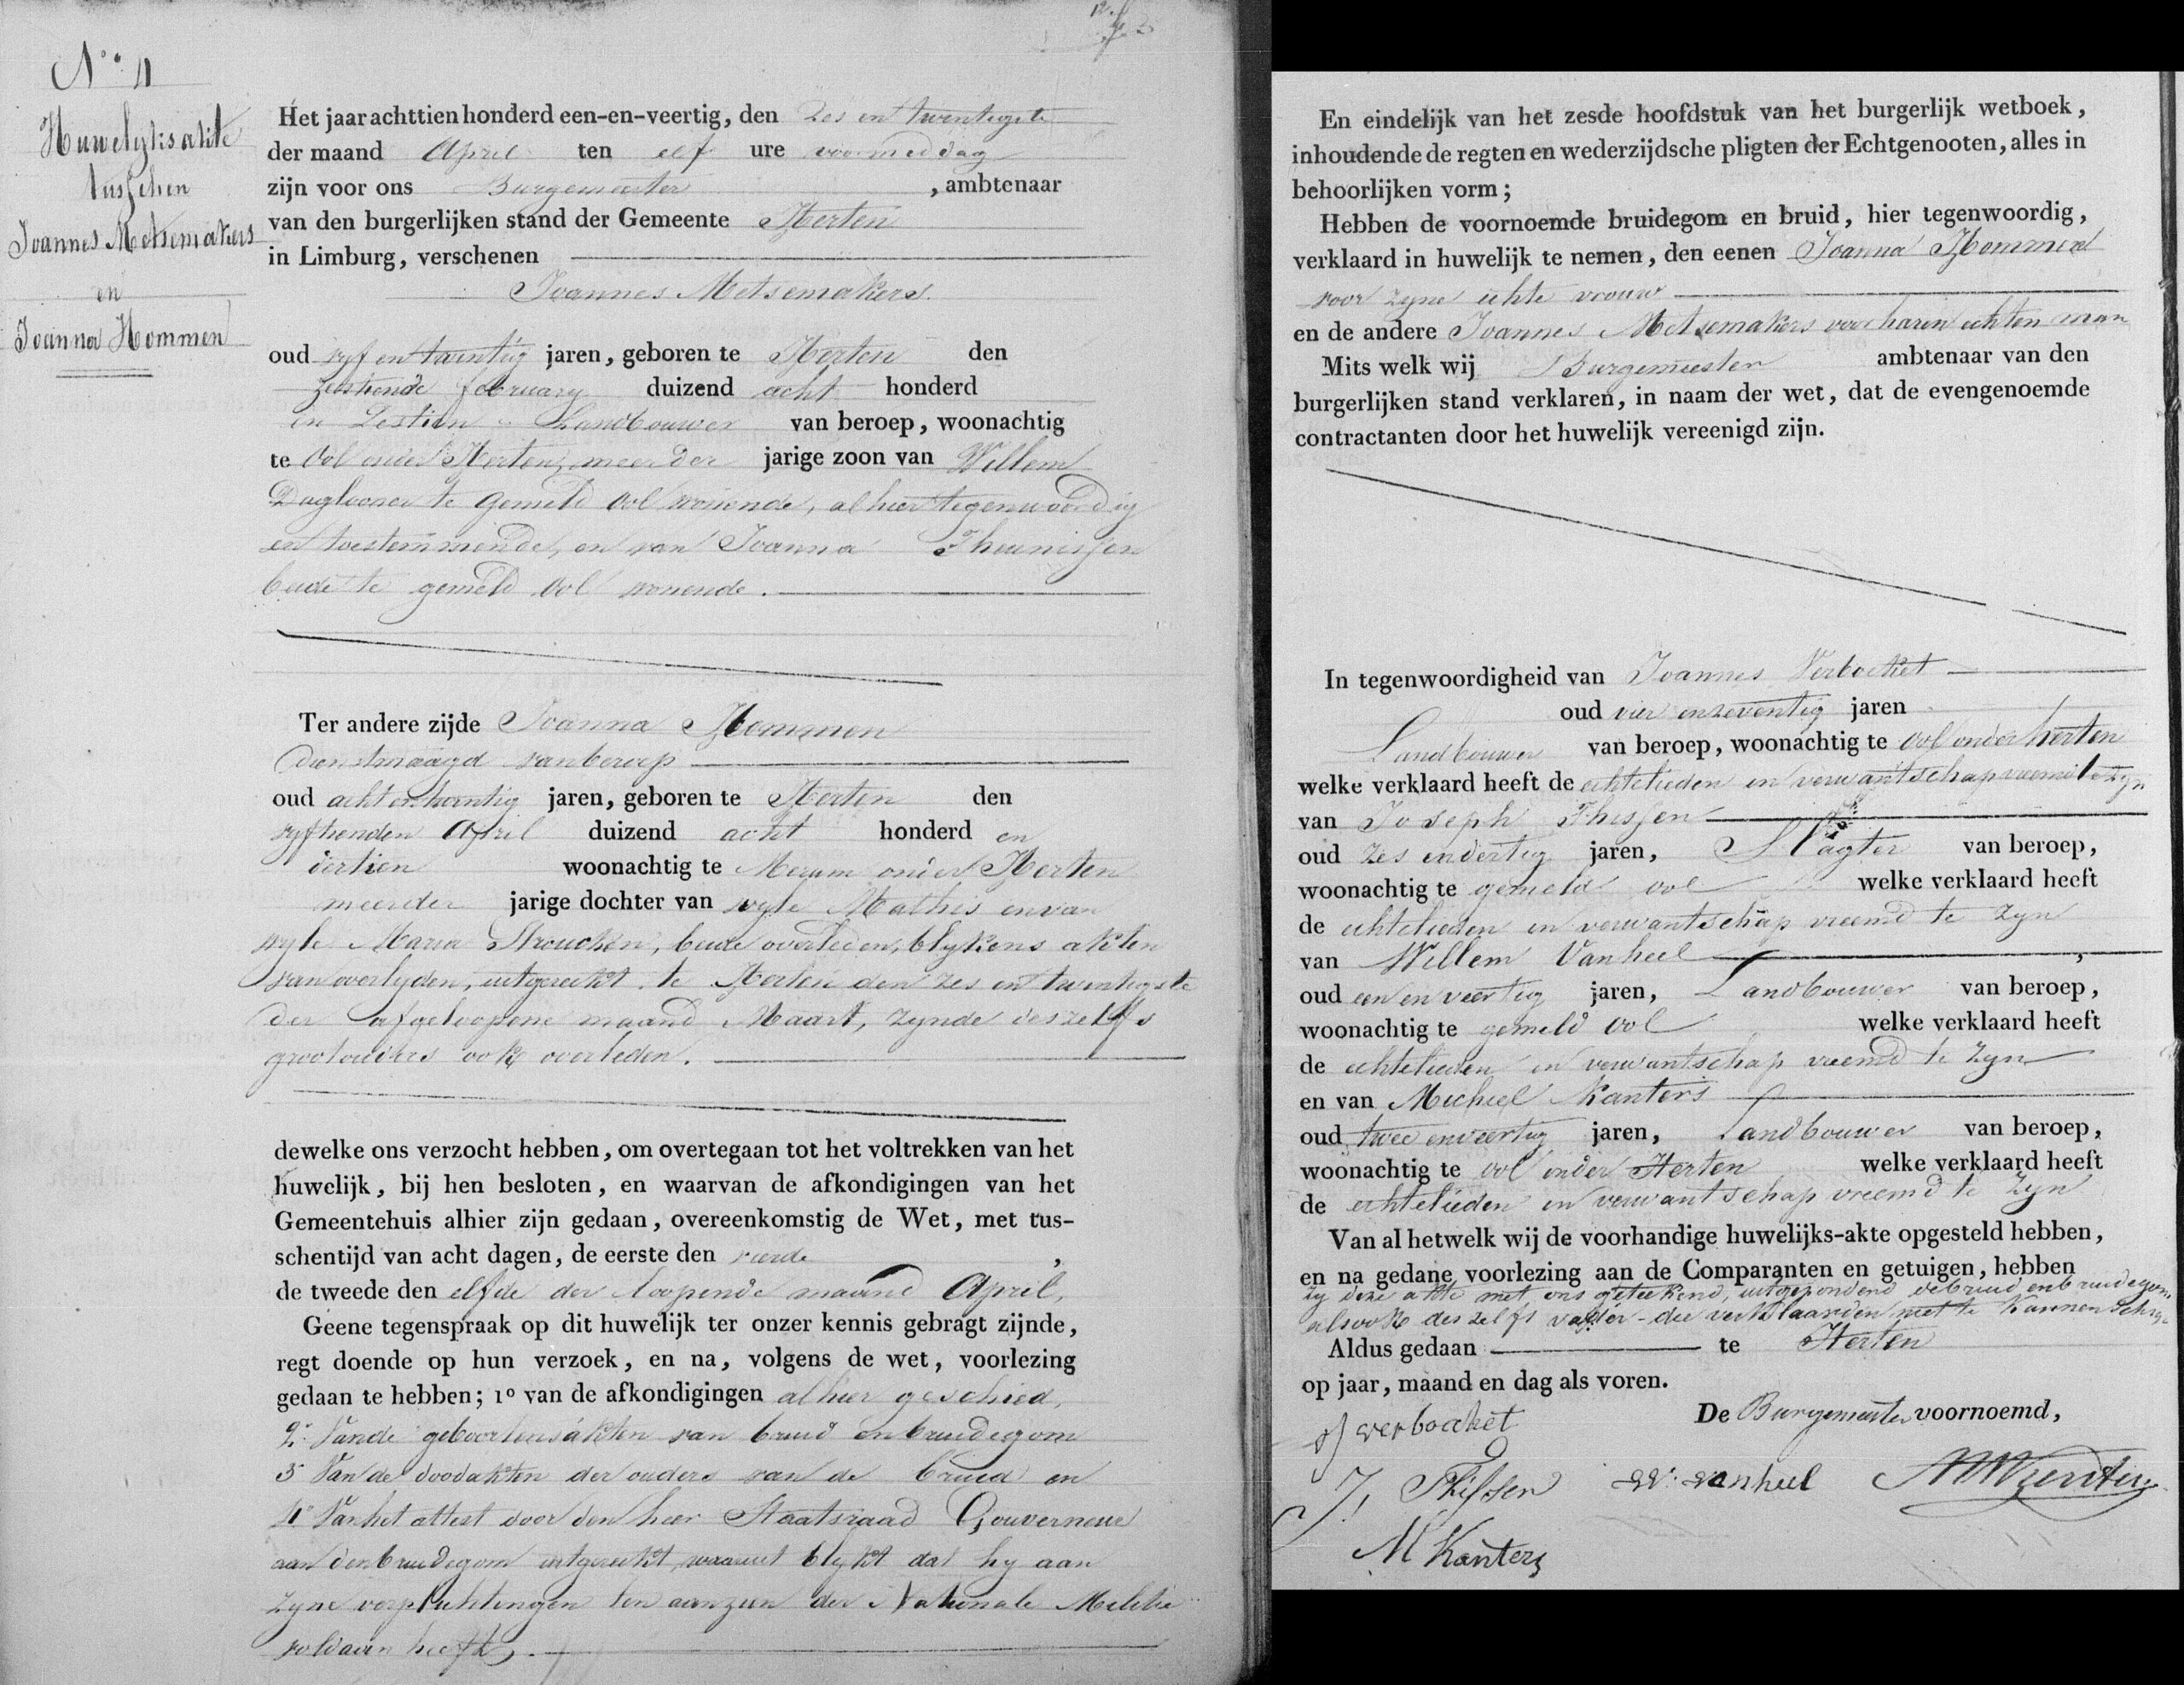 N.º 11
Huwelyks akte
tusschen
Joannes Metsemakers
en
Joanna Hommen
Het jaar achttien honderd een-en-veertig, den zes en twentigste
der maand April ten elf ure voormiddag
zijn voor ons Burgemeester , ambtenaar
van den burgerlijken stand der Gemeente Herten
in Limburg, verschenen
Joannes Metsemakers
oud vyf en twintig jaren, geboren te Herten den
zestiende february duizend acht honderd
en zestien Landbouwer van beroep, woonachtig
te Ool onder Herten, meerder jarige zoon van Willem
Daglooner te gemeld Ool wonende, alhier tegenwoordig
en toestemmende, en van Joanna Theunissen
beide te gemeld Ool wonende.
Ter andere zijde Joanna Hommen
dienstmaagd van beroep
oud acht en twintig jaren, geboren te Herten den
vyftienden April duizend acht honderd en
dertien woonachtig te Merum onder Herten
meerder jarige dochter van wyle Mathis en van
wyle Maria Stroucken, beide overleden, blykens akten
van overlyden, uitgereikt te Herten den zes en twintigste
der afgeloopene maand Maart, zynde deszelfs
grootouders ook overleden.
dewelke ons verzocht hebben, om overtegaan tot het voltrekken van het
huwelijk, bij hen besloten, en waarvan de afkondigingen van het
Gemeentehuis alhier zijn gedaan, overeenkomstig de Wet, met tus-
schentijd van acht dagen, de eerste den vierde ,
de tweede den elfde der loopende maand April,
Geene tegenspraak op dit huwelijk ter onzer kennis gebragt zijnde,
regt doende op hun verzoek, en na, volgens de wet, voorlezing
gedaan te hebben; 1º van de afkondigingen alhier geschied,
2º Van de geboorteusakten van bruid en bruidegom
3º Van de doodakten der ouders van de bruid en
4º Van het attest door den heer Staatsraad Gouverneur
aan den bruidegom uitgereikt, waaruit blykt dat hy aan
zyne verplichtingen ten aanzien der Nationale Militie
voldaan heeft.
En eindelijk van het zesde hoofdstuk van het burgerlijk wetboek,
inhoudende de regten en wederzijdsche pligten der Echtgenooten, alles in
behoorlijken vorm;
Hebben de voornoemde bruidegom en bruid, hier tegenwoordig,
verklaard in huwelijk te nemen, den eenen Joanna Hommen
voor zyne echte vrouw
en de andere Joannes Metsemakers voor haren echten man
Mits welk wij Burgemeester ambtenaar van den
burgerlijken stand verklaren, in naam der wet, dat de evengenoemde
contractanten door het huwelijk vereenigd zijn.
In tegenwoordigheid van Joannes Verbocket
oud vier en zeventig jaren
Landbouwer van beroep, woonachtig te Ool onder herten
welke verklaard heeft de echtelieden in verwantschap vreemd te zyn
van Joseph Thissen
oud zes en dertig jaren, Slagter van beroep,
woonachtig te gemeld ool welke verklaard heeft
de echtelieden in verwantschap vreemd te zyn
van Willem Vanheel ,
oud een en veertig jaren, Landbouwer van beroep,
woonachtig te gemeld Ool welke verklaard heeft
de echtelieden in verwantschap vreemd te zyn
en van Michiel Kanters
oud twee en veertig jaren, Landbouwer van beroep,
woonachtig te Ool onder Herten welke verklaard heeft
de echtelieden in verwantschap vreemd te zyn
Van al hetwelk wij de voorhandige huwelijks-akte opgesteld hebben,
en na gedane voorlezing aan de Comparanten en getuigen, hebben
zy deze akte met ons geteekend, uitgezonderd de bruid en bruidegom,
alsook des zelfs vader - die verklaarden niet te kunnen
Aldus gedaan te Herten
op jaar, maand en dag als voren.
De Burgemeester voornoemd,
J verbocket
J. Thissen W. vanheel
M Kanters